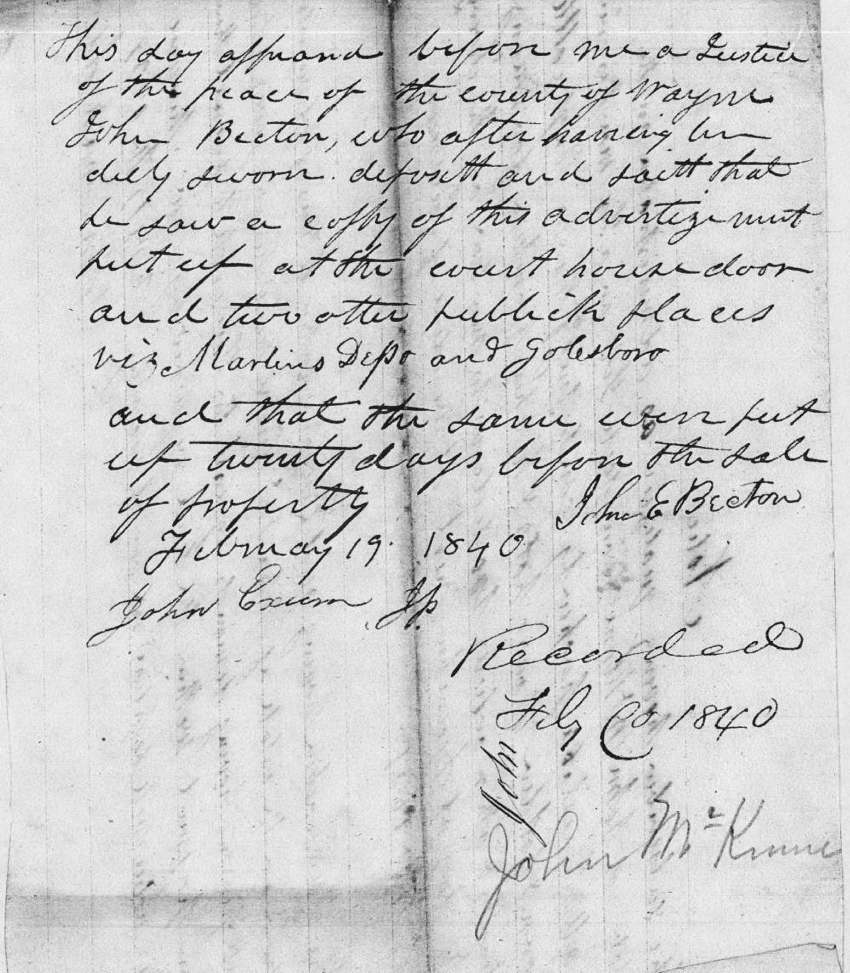 This day appeard before me a Justice
of the peace of the county of Wayne
John Becton, who after having ben
duly sworn deposeth and saith that
he saw a coppy of this advertizement
put up at the court house door
and two other publick places
viz Martins Depo and Golesboro
and that the same were put
up twenty days before the sale
of property
John E Becton
February 19 1840
John Exum Jp
Recorded
Feby Ct 1840
John
John McKinne